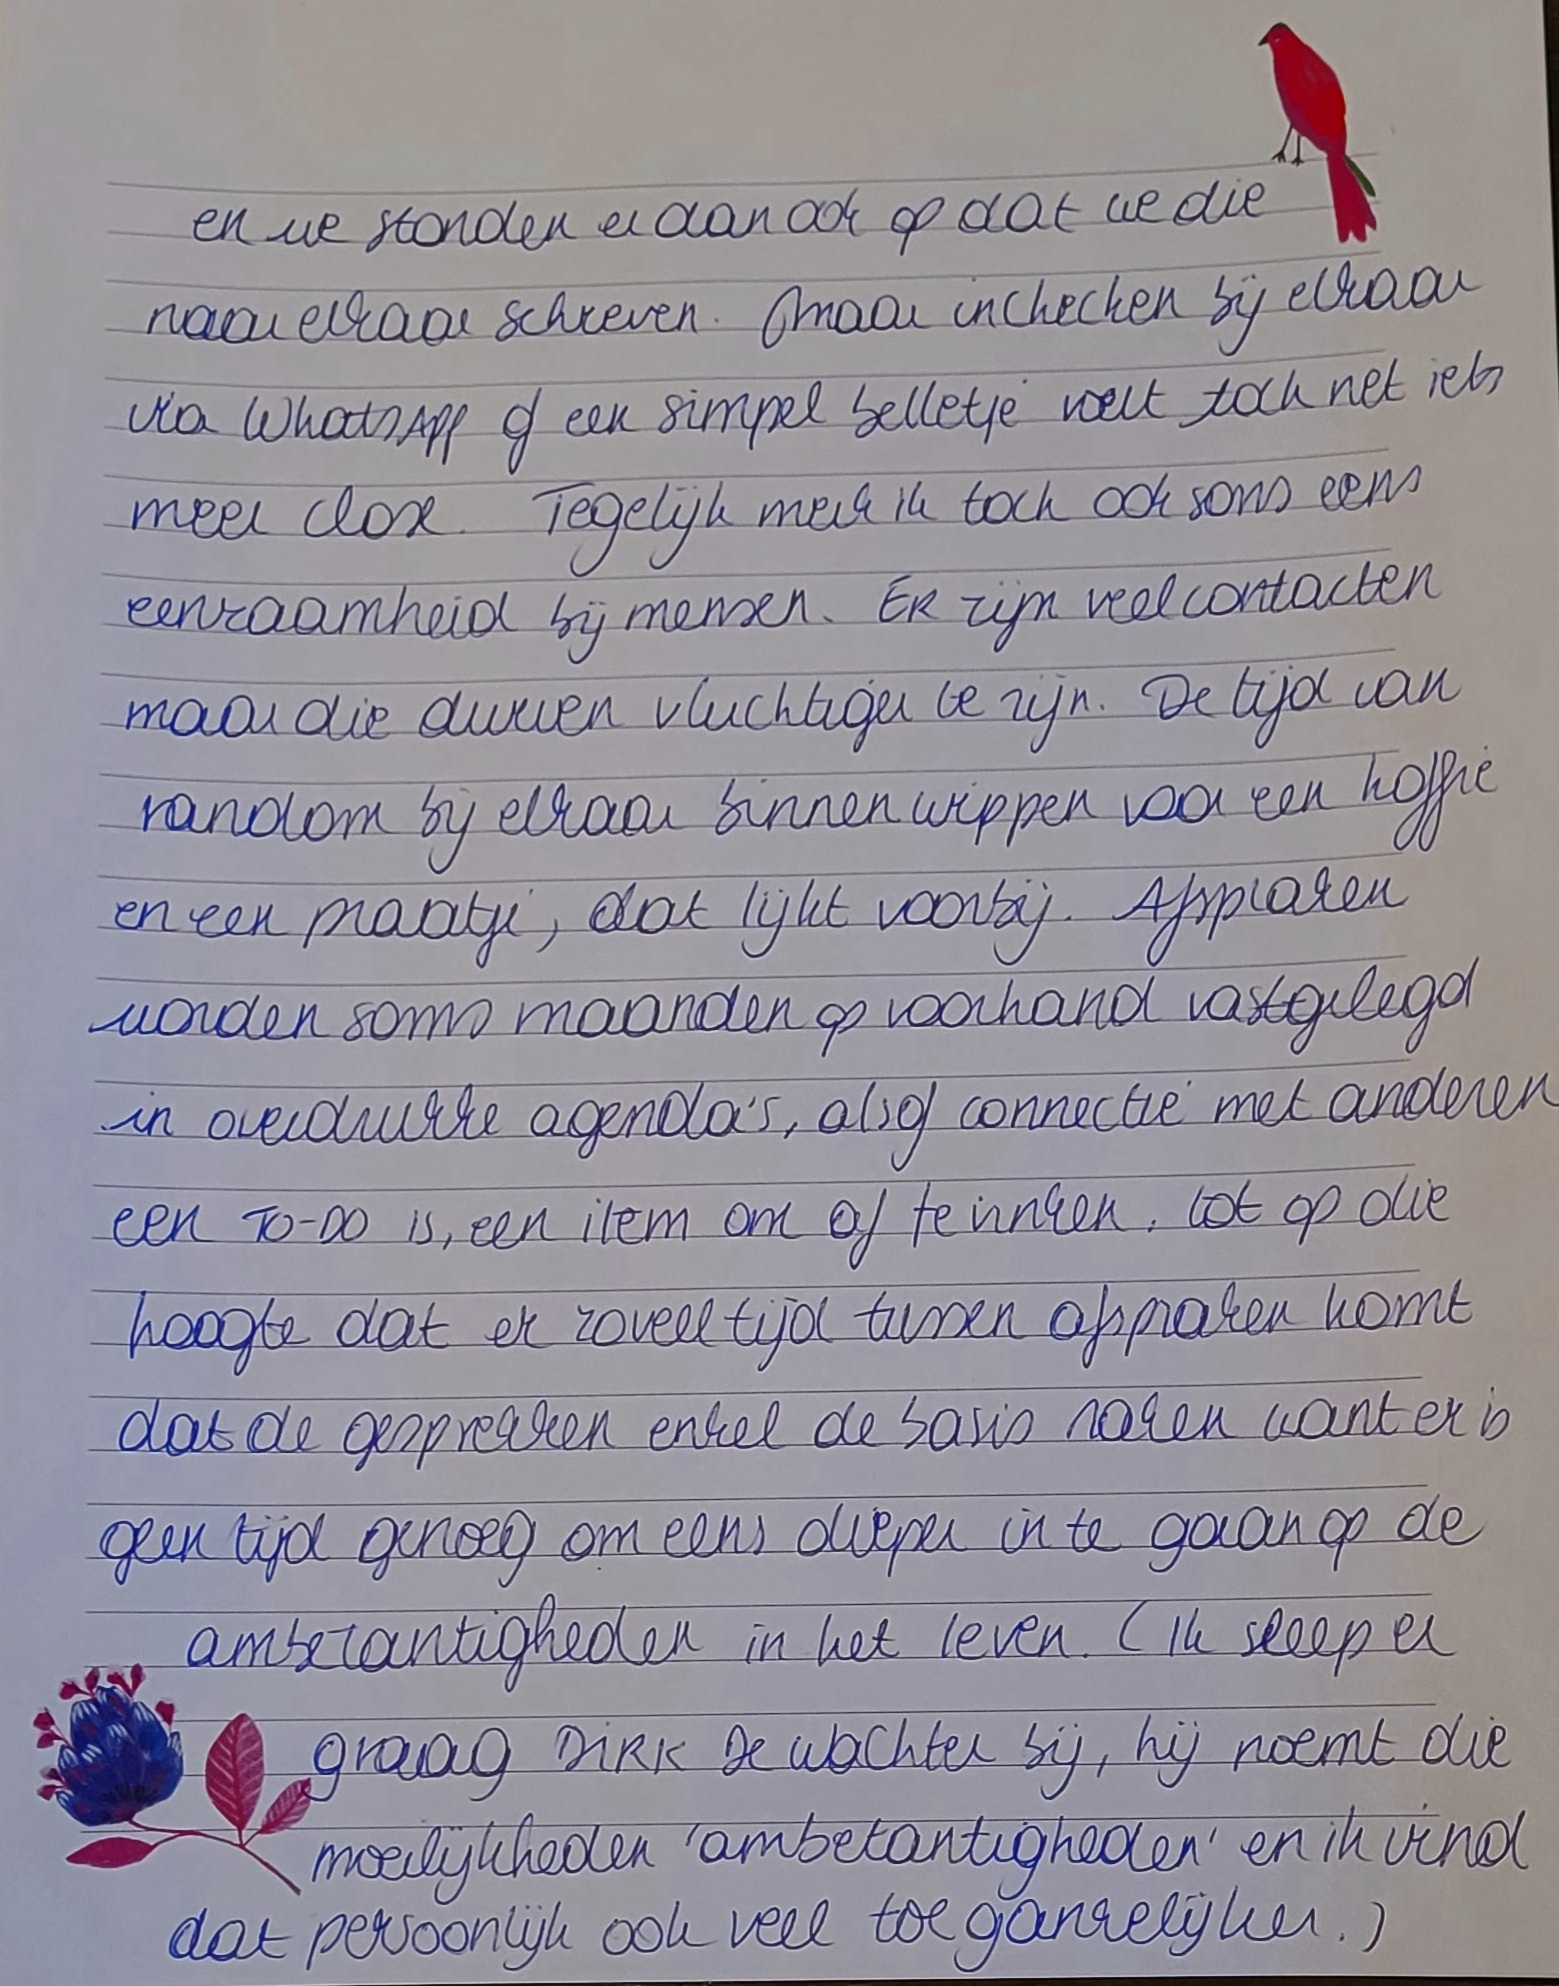 en we stonden er dan ook op dat we die
naar elkaar schreven. Maar inchecken bij elkaar
via WhatsApp of een simpel belletje voelt toch net iets
meer close. Tegelijk merk ik toch ook soms eens
eenzaamheid bij mensen. Er zijn veel contacten
maar die durven vluchtiger te zijn. De tijd van
random bij elkaar binnenwippen voor een koffie
en een praatje, dat lijkt voorbij. Afspraken
worden soms maanden op voorhand vastgelegd
in overdrukke agenda's, alsof connectie met anderen
een TO-DO is, een item om af te vinken, tot op die
hoogte dat er zoveel tijd tussen afspraken komt
dat de gesprekken enkel de basis raken want er is
geen tijd genoeg om eens dieper in te gaan op de
ambetantigheden in het leven. (Ik sleep er
graag Dirk De Wachter bij, hij noemt die
moeilijkheden 'ambetantigheden' en ik vind
dat persoonlijk ook veel toegankelijker.)